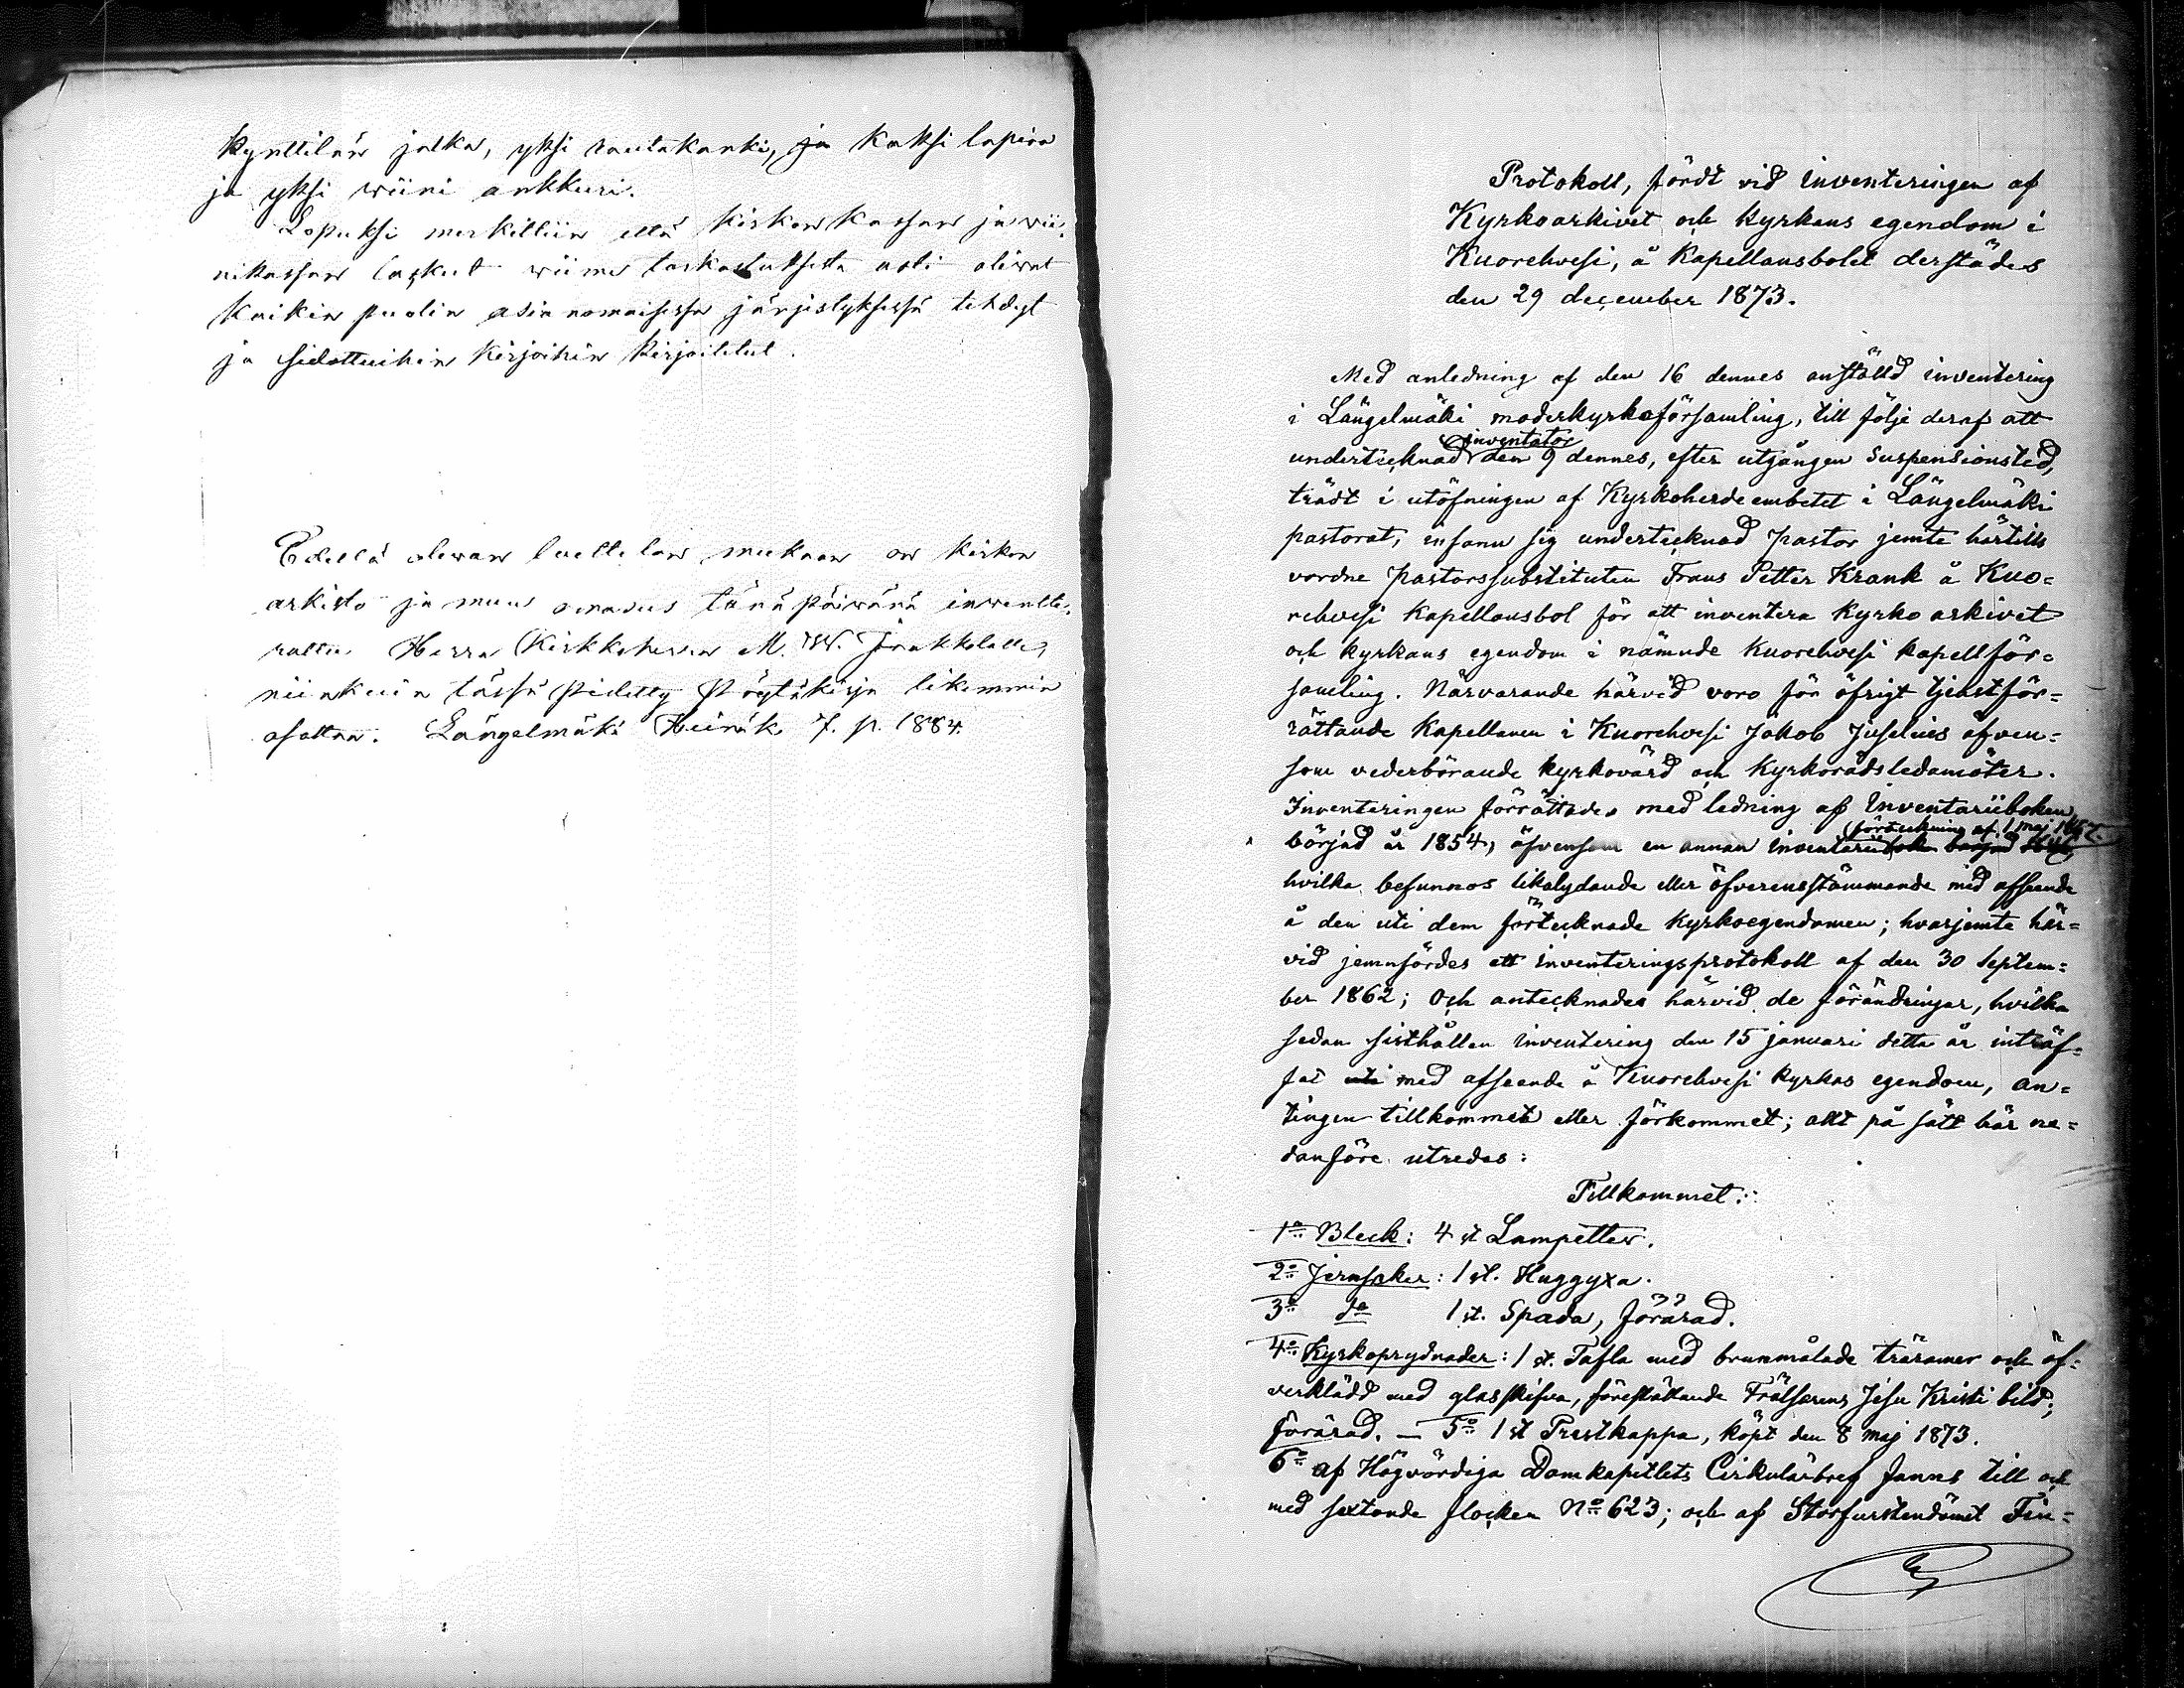 Kynttilän jalka, yksi rautakanki, ja kaksi lapiota
ja yksi wiini ankkuri.
Lopuksi merkittiin että kirkon kassan ja wii-
nikassan laskut wiime tarkastuksesta asti oliwat
kaikin puolin asianomaisessa järjestyksessä tehdyt
ja sidottuihin kirjoihin kirjoitetut.
Edellä olewan luettelon mukaan on kirkon
arkisto ja muu omaisuus tänä päiwänä inwentte-
rattu Herra Kirkkoherra M. W. Jaakkolalle,
niinkuin tässä pidetty pöytäkirja likemmin
osottaa. Längelmäki Heinäk. 7. p. 1884.
Protokoll, fördt vid inventeringen af
Kyrkoarkivet och kyrkans egendom i
Kuorehvesi, å Kapellansbolet derstädes
den 29 december 1873.
Med anledning af den 16 dennes anstäld inventering
i Längelmäki moderkyrkoförsamling, till följe deraf att
inventator
undertecknad den 9 dennes, efter utgången suspensionstid,
trädt i utöfningen af Kyrkoherdeembetet i Längelmäki
pastorat, infann sig undertecknad pastor jemte härtills
vordne pastorssubstituten Frans Petter Krank å Kuo=
rehvesi Kapellansbol för att inventera kyrko arkivet
och kyrkans egendom i nämnde Kuorehvesi kapellför=
samling. Närvarande härvid voro för öfrigt tjenstför=
rättande Kapellanen i Kuorehvesi Jakob Juselius äfven=
som vederbörande kyrkovärd och Kyrkorådsledamöter.
Inventeringen förrättades med ledning af Inventariiboken
förteckning af 1 maj
börjad år 1854, äfvensom en annan inventarii bok börjad
hvilka befunnos likalydande eller öfverensstämmande med afseende
å den uti dem förtecknade kyrkoegendomen; hvarjemte här=
vid jemnfördes ett inventeringsprotokoll af den 30 Septem=
ber 1862; Och antecknades härvid de förändringar, hvilka
sedan sisthållen inventering den 15 januari detta år inträf=
fat uti med afseende å Kuorehvesi kyrkas egendom, an=
tingen tillkommet eller förkommet; allt på sätt här ne=
danföre utredes:
Tillkommet:
1o Bleck: 4 st Lampetter.
2o Jernsaker: 1 st. Huggyxa.
3o do 1 st. Spada, förärad.
4o Kyrkoprydnader: 1 st. Tafla med brunmålade träramer och öf=
verklädd med glasskifva, föreställande Frälsarens Jesu Kristi bild;
förärad. — 5o 1 st Prestkappa, köpt den 8 maj 1873.
6o af Högvördiga Domkapitlets Cirkulärbref fanns till och
med sextonde flocken No 623; och af Storfurstendömet Fin=